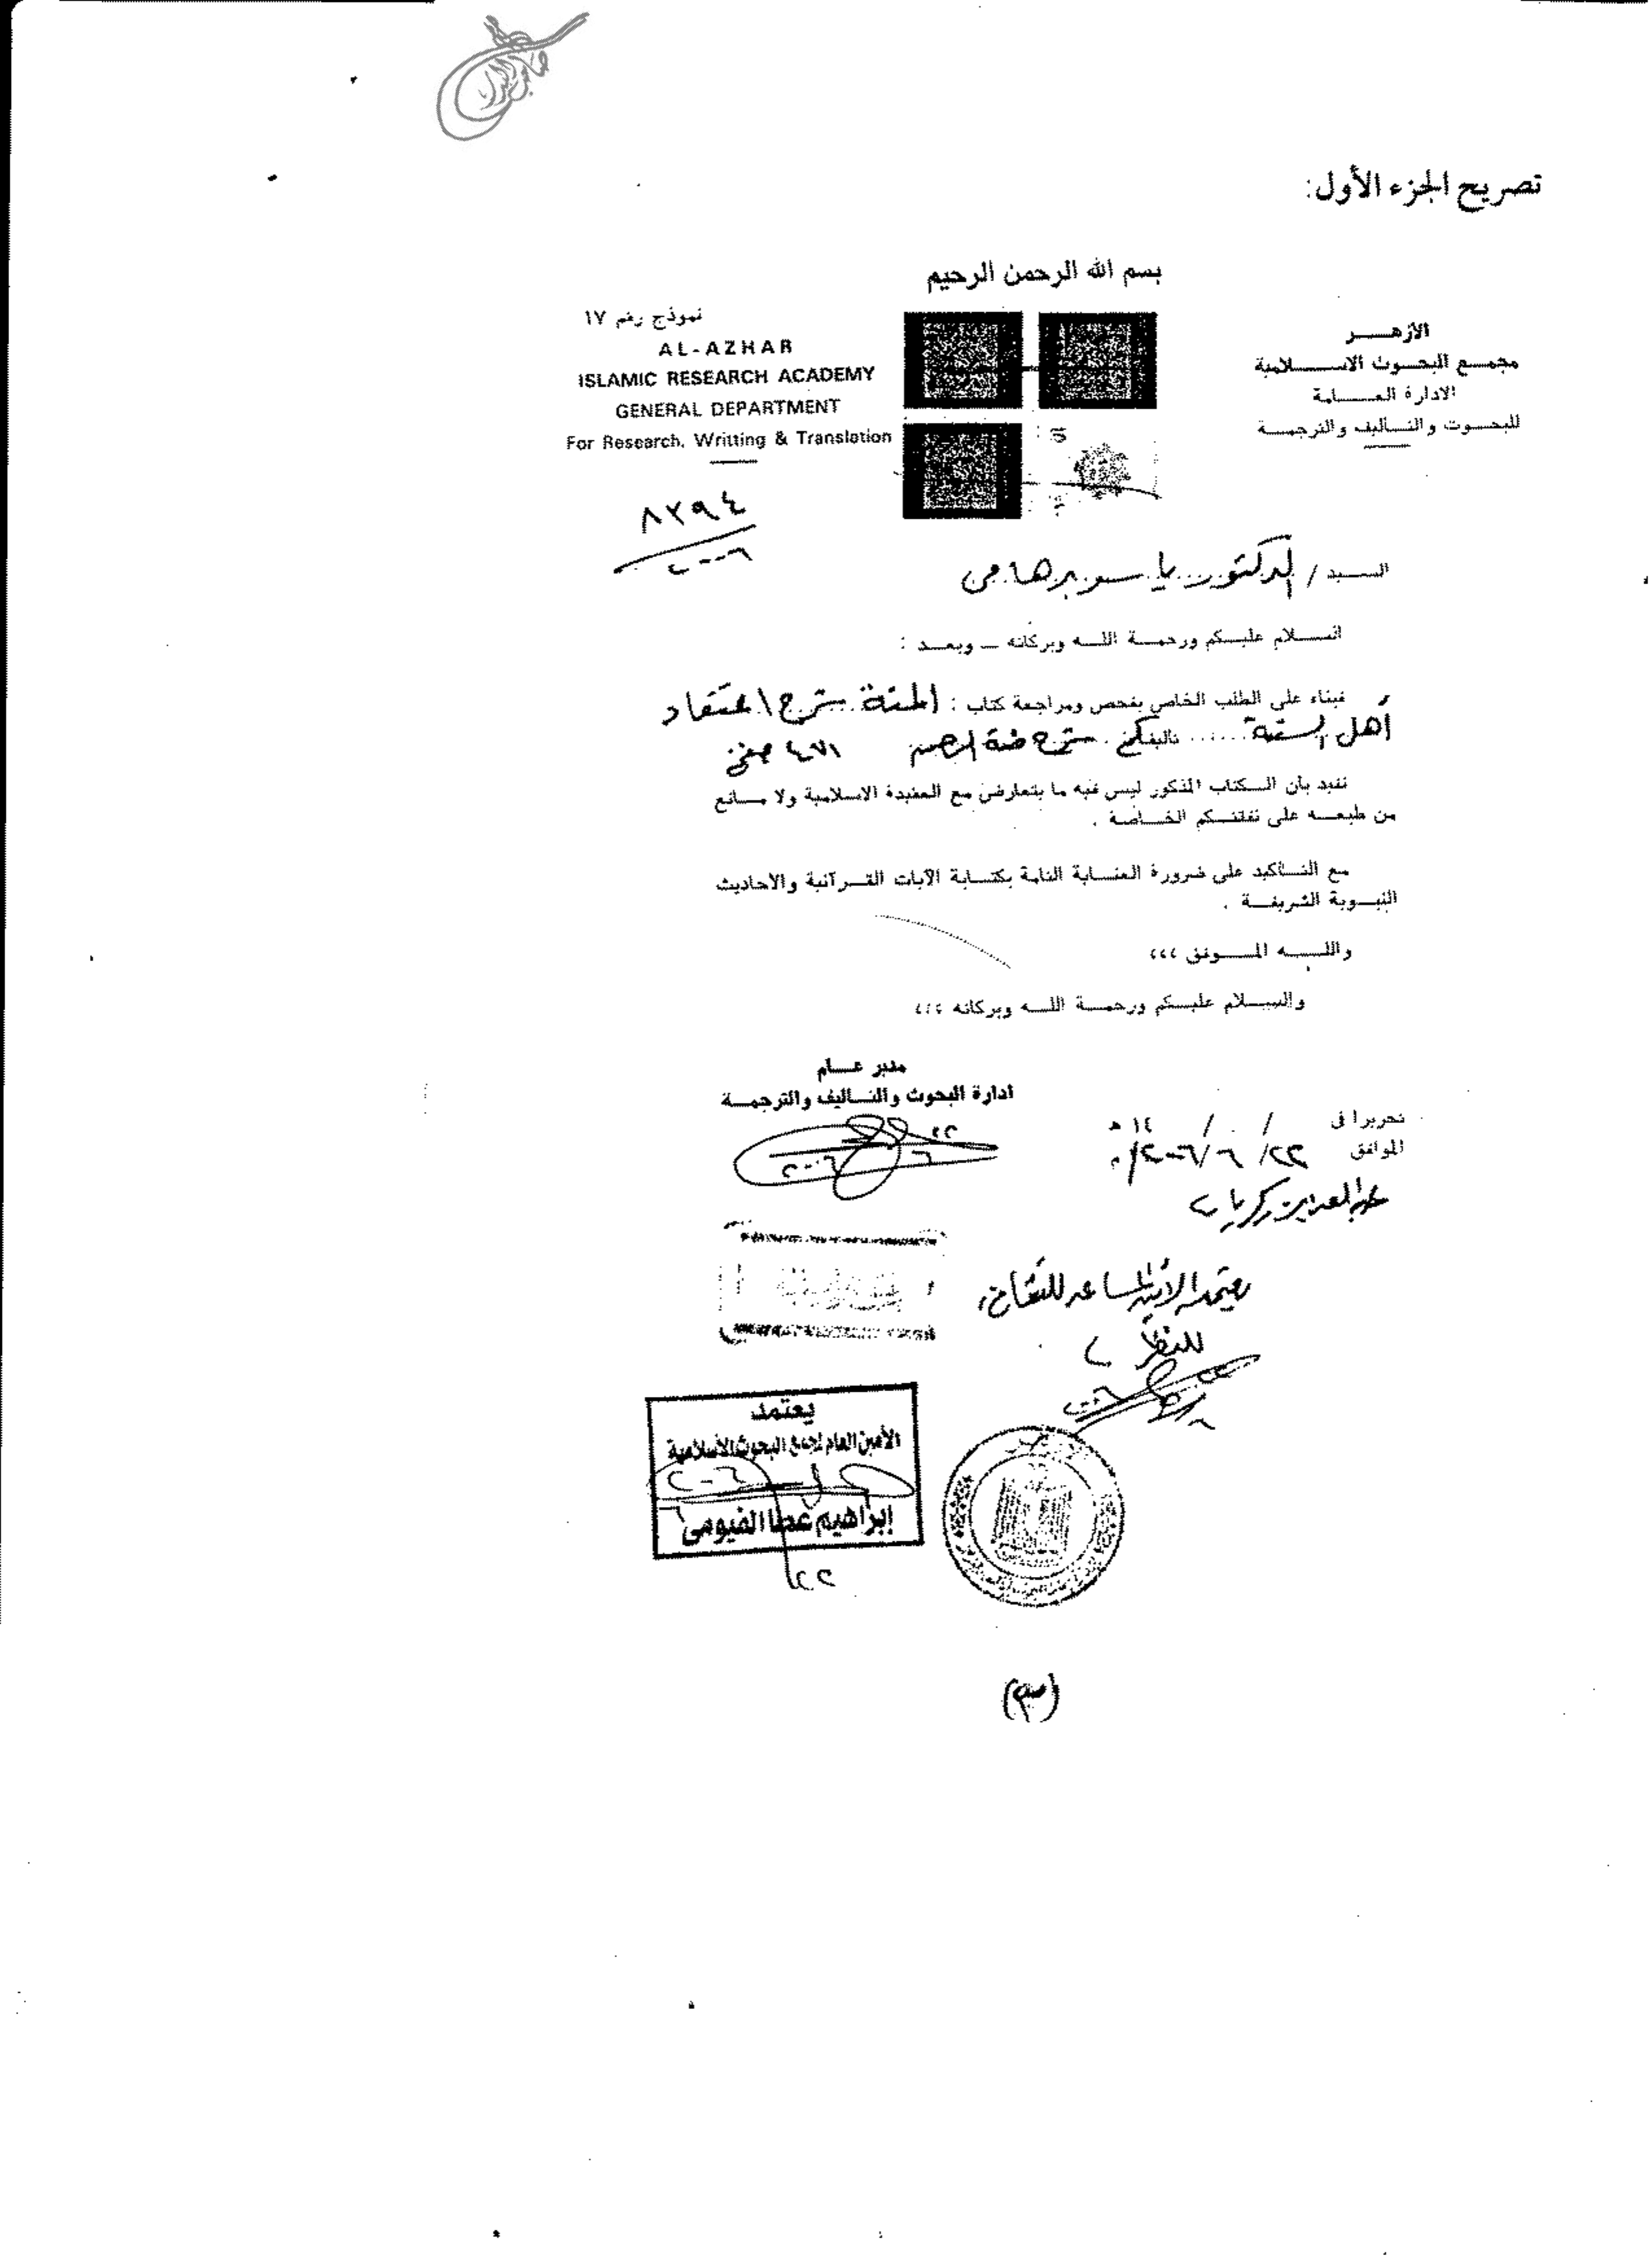 تصريح الجزء الأول:
بسم الله الرحمن الرحيم
الأزهـــر
مجمـع البحـوث الاســـلامية
الادارة العـــامة
للبحـوث والتـأليف والترجمـة
نموذج رقم ١٧
AL-AZHAR
ISLAMIC RESEARCH ACADEMY
GENERAL DEPARTMENT
For Research, Writting & Translation
٨٢٩٤
٢٠٠٦
السـيد / الدكتور ياسر برهامى
السـلام عليـكم ورحمـة اللـه وبركاته ــ وبعـد :
فبناء على الطلب الخاص بفحص ومراجعة كتاب : المنة شرح اعتقاد
أهل السنة ...... تأليفكم
نفيد بأن الـكتاب المذكور ليس فيه ما يتعارض مع العقيدة الاسـلامية ولا مـانع
من طبعـه على نفقتـكم الخـاصة .
مع التـأكيد على ضرورة العنـاية التامة بكتـابة الآيات القـرآنية والأحاديث
النبـوية الشريفـة .
واللـــه المـــوفق ،،،
والسـلام عليـكم ورحمـة اللـه وبركاته ،،،
مدير عـــام
ادارة البحوث والتـأليف والترجمـة
٢٢
٦
٢٠٠٦
تحريرا فى / / ١٤ هـ
الموافق ٢٢/ ٦ /٢٠٠٦ م
عبدالعزيز زكريا
للنظر
يعتمد
الأمين العام لمجمع البحوث الإسلامية
٢٠٠٦
إبراهيم عطا الفيومى
٢٢
(٣)